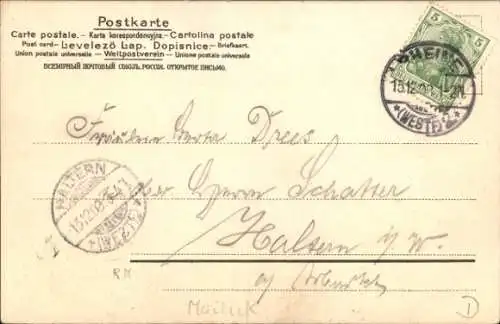 Postkarte
Carte postale. – Karta korespondencyjna. – Cartolina postale
Post card – Levelező Lap. Dopisnice – Briefkaart.
Union postale universelle – Weltpostverein – Unione postale universale
ВСЕМІРНЫЙ ПОЧТОВЫЙ СОЮЗЪ. РОССІЯ. ОТКРЫТОЕ ПИСЬМО.
5 5
RHEINE
15.12.
*(WESTF.) 2*
Fräulein Drees
HALTERN
15.12.
*(WESTF.)*
Herrn Schatter
Haltern i/W.
RH